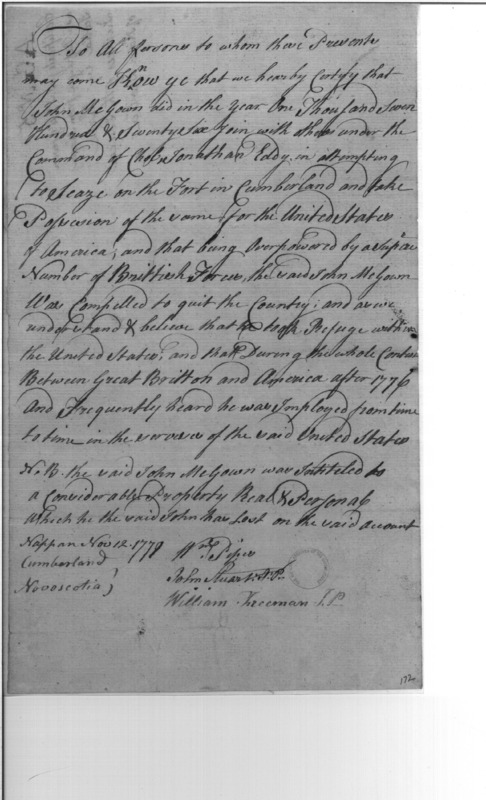 To All persons to whom these Presents
may come Know ye that we hearby Certify that
John McGown did in the Year One Thousand Seven
Hundred & Seventy Six Join with others under the
Command of Jonathan Eddy in attempting
to Seaze on the Fort in Cumberland and take
Possession of the same for the United States
of America, and that being Overpowered by a
Number of Brittish Forces, the said John McGown
Was Compelled to quit the Country; and as we
understand & believe that he took Refuge within
the United States; and that During the whole
Between Great Britton and America after 1776
And Frequently heard he was Imployed from time
to time in the service of the said United States
N.B. the said John McGown was Intiteled to
a Considerable Property Real & Personal
Which he the said John has Lost on the said account
Nappan Nov 12 1778
Cumberland
Novascotia
Wm Pipes
John Stuart J.P.
William Freeman J.P.
172